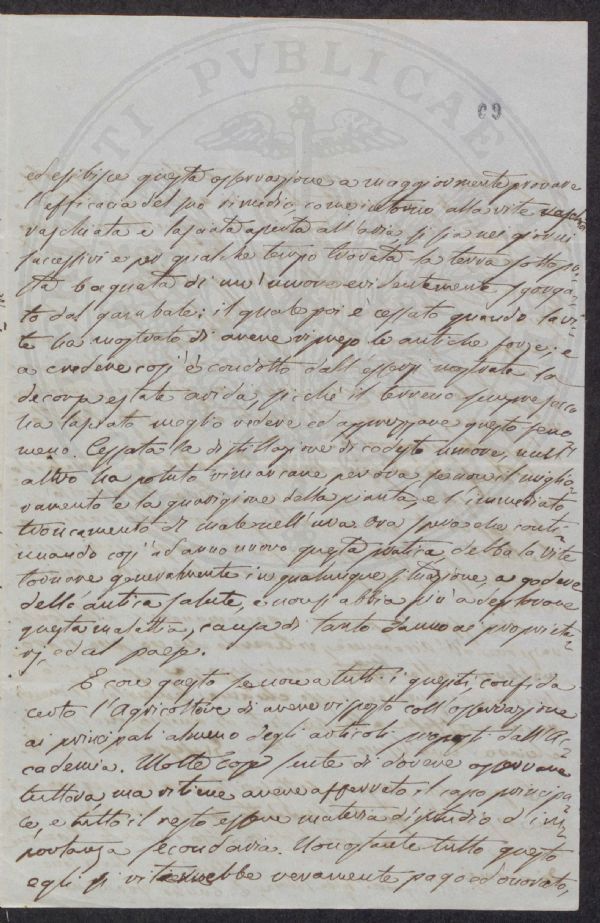 69
ed esibisce questa osservazione a maggiormente provare
l'efficacia del suo rimedio, come intorno alla vite
raschiata e lasciata aperta all'aria si sia nei giorni
successivi e per qualche tempo trovata la terra sottopo=
sta bagnata di un'umore evidentemente sgorga=
to dal gambale: il quale poi è cessato quando la vi=
te ha mostrato di avere ripreso le antiche forze; e
a credere così è condotto dall'essersi mostrata la
decorsa estate arida, sicchè il terreno sempre secco
ha lasciato meglio vedere ed apprezzare questo feno=
meno. Cessata la distillazione di codesto umore, null'
altro ha potuto rimarcare per ora, se non il miglio=
ramento e la guarigione della pianta, e l'immediato
troncamento di male nell'uva. Ora spera che conti=
nuando così ad anno nuovo questa pratica, debba la vite
tornare generalmente in qualunque situazione, a godere
dell'antica salute, e non si abbia più a deplorare
questa malattia, causa di tanto danno ai proprieta=
rj, ed al paese.
E con questo se non a tutti i quesiti, confida
certo l'Agricoltore di avere risposto coll'osservazione
ai principali almeno degli articoli proposti dall'Ac=
cademia. Molte cose sente di dovere osservare
tuttora ma ritiene avere afferrato il capo principa=
le, e tutto il resto essere materia di studio d'im=
portanza secondaria. Nonostante tutto questo
egli si riterrebbe veramente pago ed onorato,
PUBLICAE